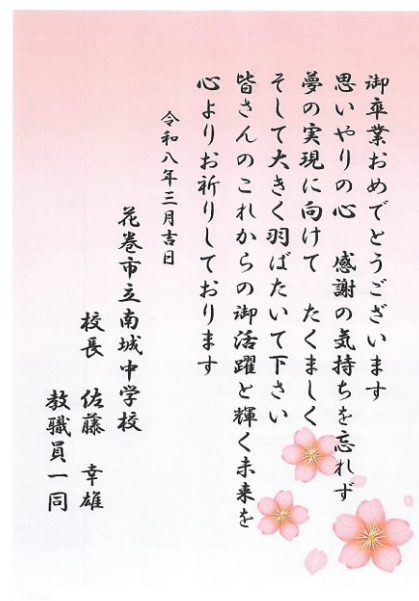 御卒業おめでとうございます
思いやりの心　感謝の気持ちを忘れず
夢の実現に向けて　たくましく
そして大きく羽ばたいて下さい
皆さんのこれからの御活躍と輝く未来を
心よりお祈りしております
令和八年三月吉日
花巻市立南城中学校
校長　佐藤　幸雄
教職員一同